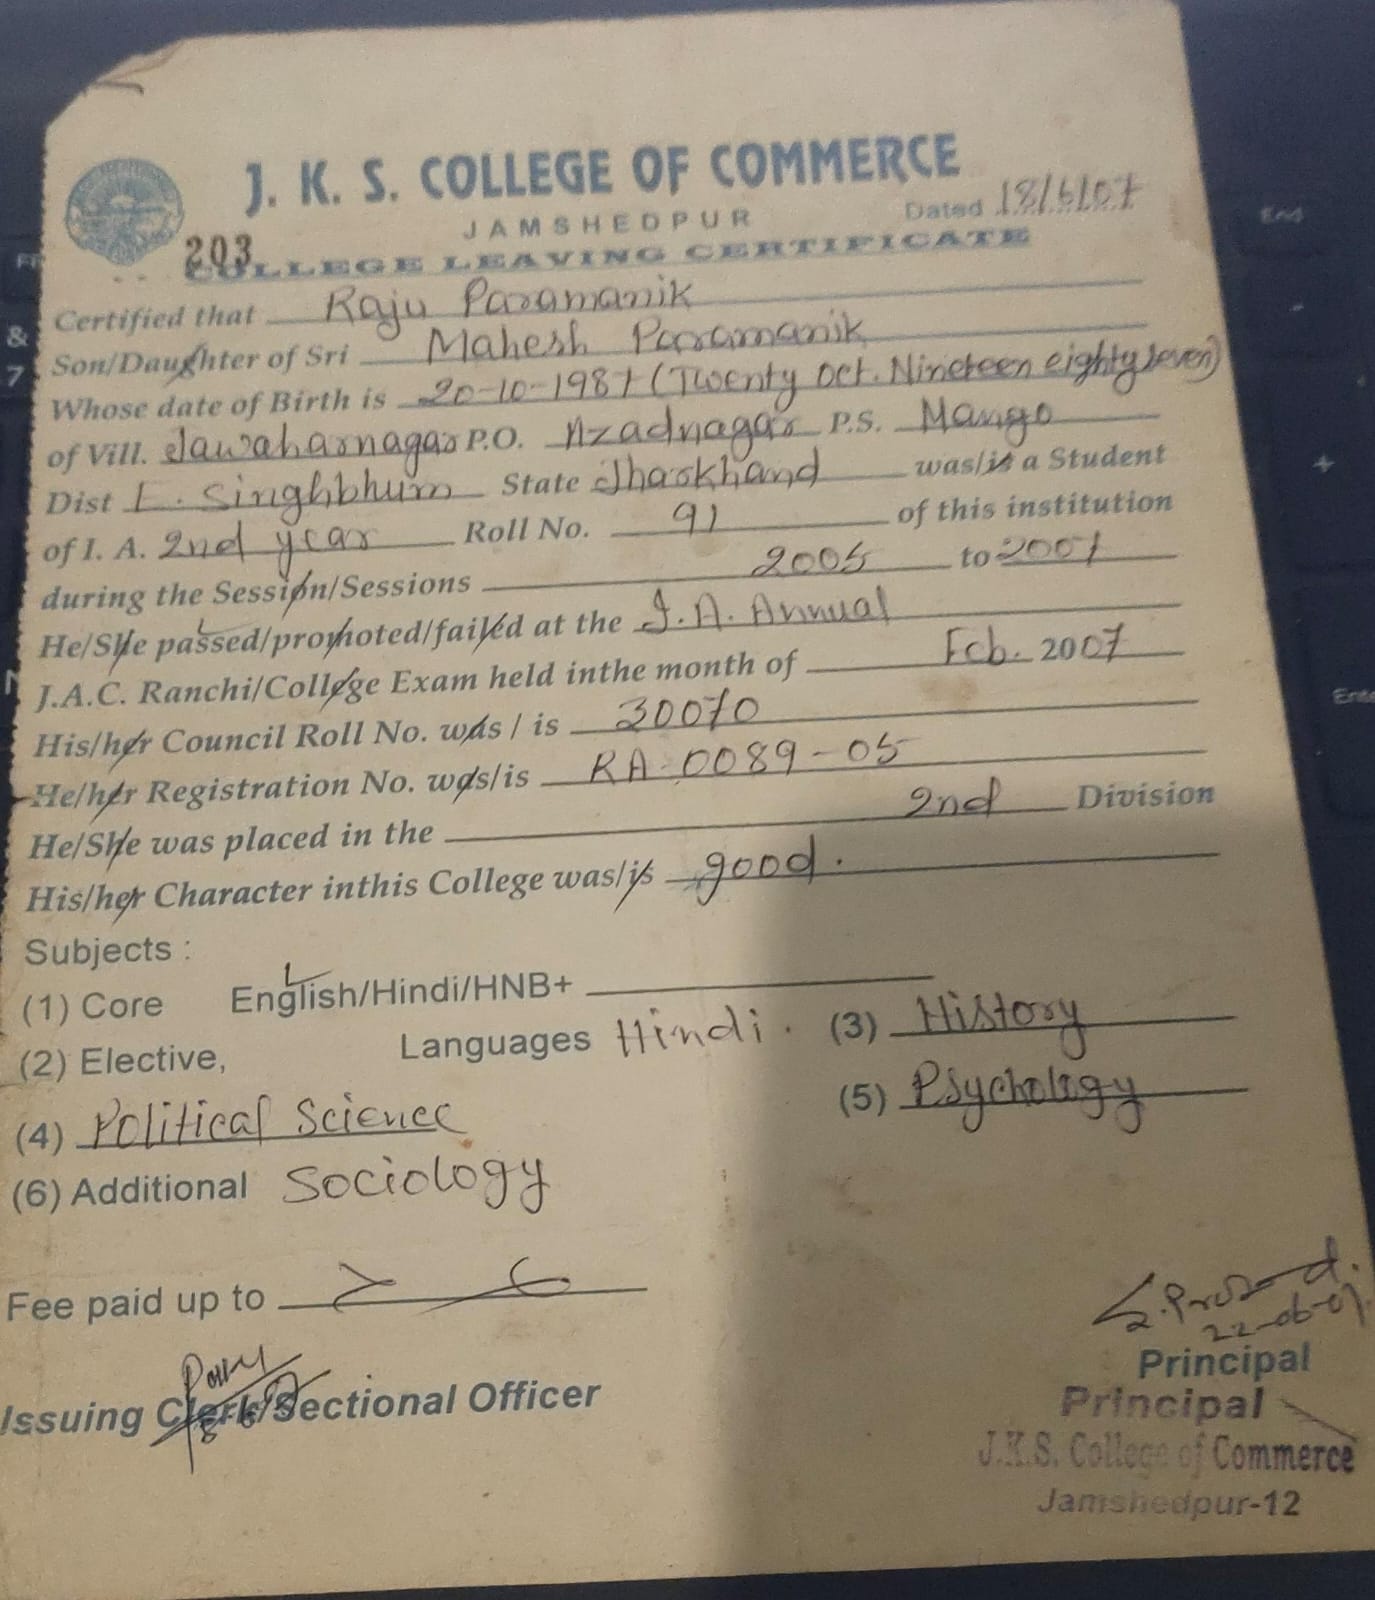 J. K. S. COLLEGE OF COMMERCE
JAMSHEDPUR
Dated 18/6/07
203
COLLEGE LEAVING CERTIFICATE
Certified that Raju Paramanik
Son/Daughter of Sri Mahesh Paramanik
Whose date of Birth is 20-10-1987 (Twenty Oct. Nineteen eighty seven)
of Vill. Jawaharnagar P.O. Azadnagar P.S. Mango
Dist E. Singhbhum State Jharkhand was/is a Student
of I. A. 2nd year Roll No. 91 of this institution
during the Session/Sessions 2005 to 2007
He/She passed/promoted/failed at the I.A. Annual
J.A.C. Ranchi/College Exam held inthe month of Feb. 2007
His/her Council Roll No. was / is 30070
He/her Registration No. was/is RA-0089-05
He/She was placed in the 2nd Division
His/her Character inthis College was/is good.
Subjects :
(1) Core English/Hindi/HNB+
(2) Elective, Languages Hindi. (3) History
(4) Political Science (5) Psychology
(6) Additional Sociology
Fee paid up to
S. Prasad.
22-06-07
Issuing Clerk/Sectional Officer
Principal
Principal
J.K.S. College of Commerce
Jamshedpur-12